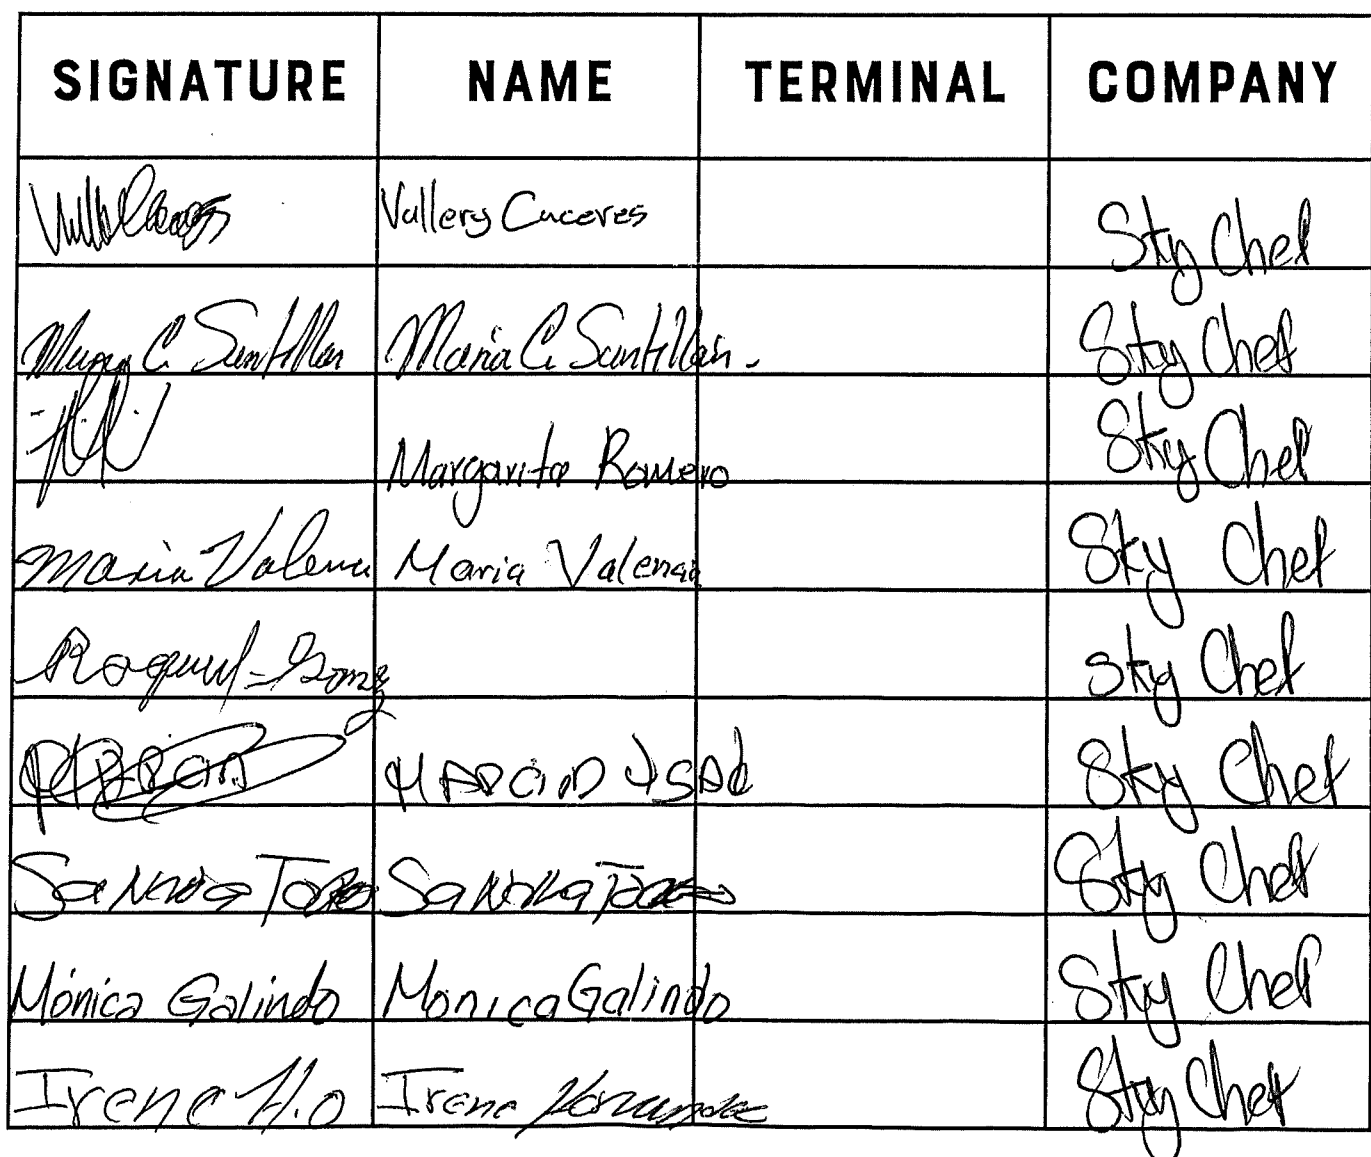 SIGNATURE NAME TERMINAL COMPANY
Vallery Caceres Sky Chef
Maria C. Santillan Maria C. Santillan. Sky Chef
Margarita Romero Sky Chef
Maria Valencia Maria Valencia Sky Chef
Raquel Gomez Sky Chef
Sky Chef
Sandra Sandra Sky Chef
Mónica Galindo Monica Galindo Sky Chef
Irene H.O Irene Hernandez Sky Chef